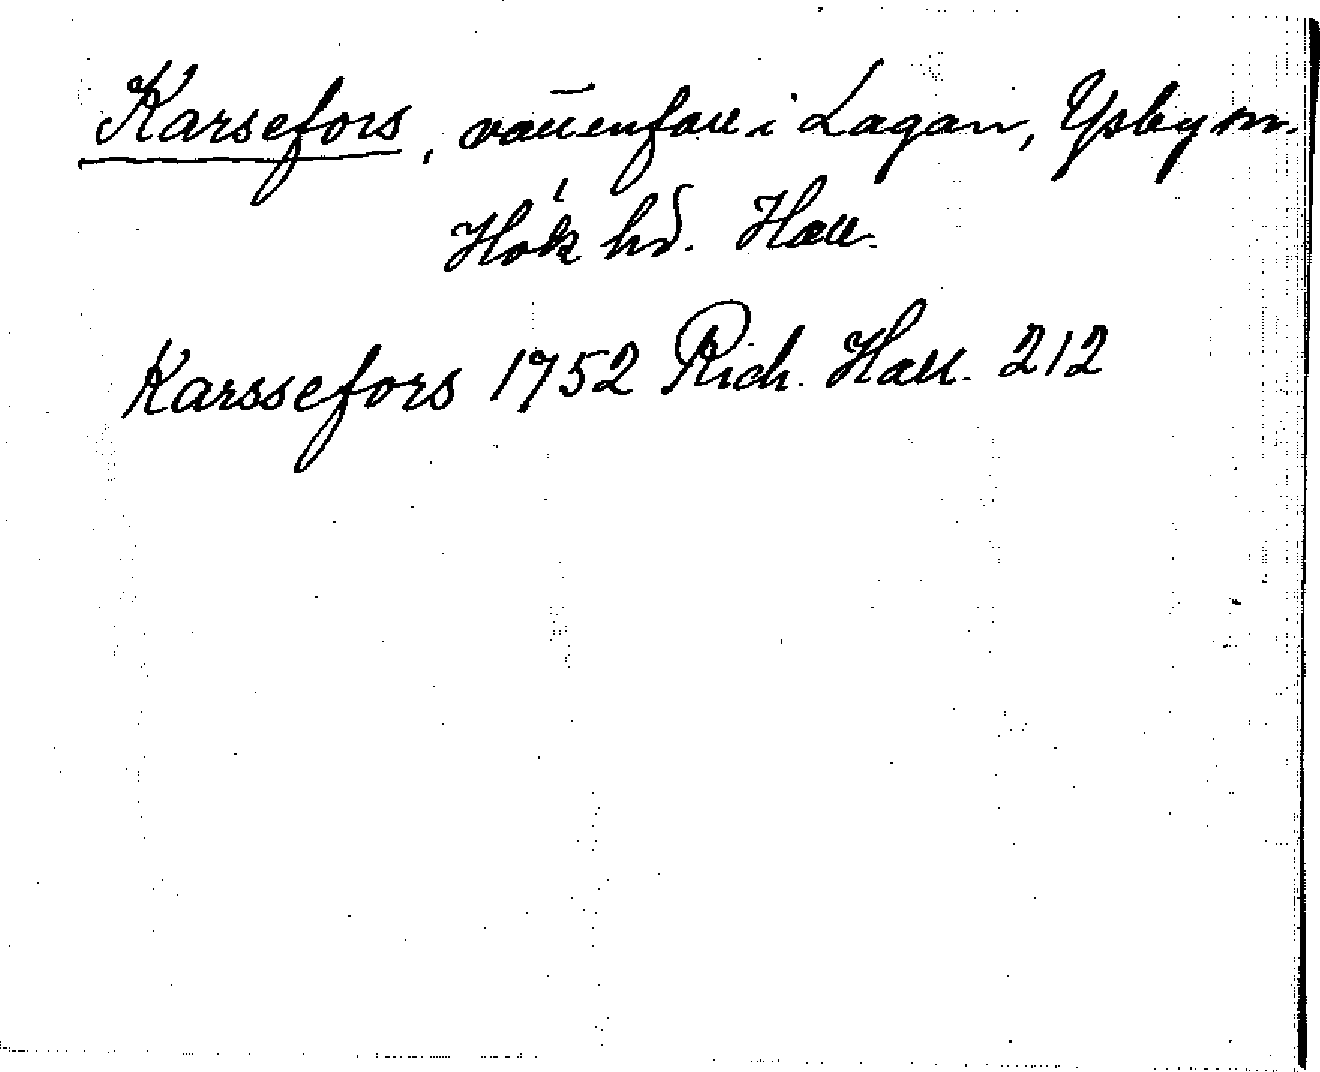 Karsefors, vattenfall i Lagan, Ysby sn.
Höks hd. Hall.
Karssefors 1752 Rich. Hall. 212